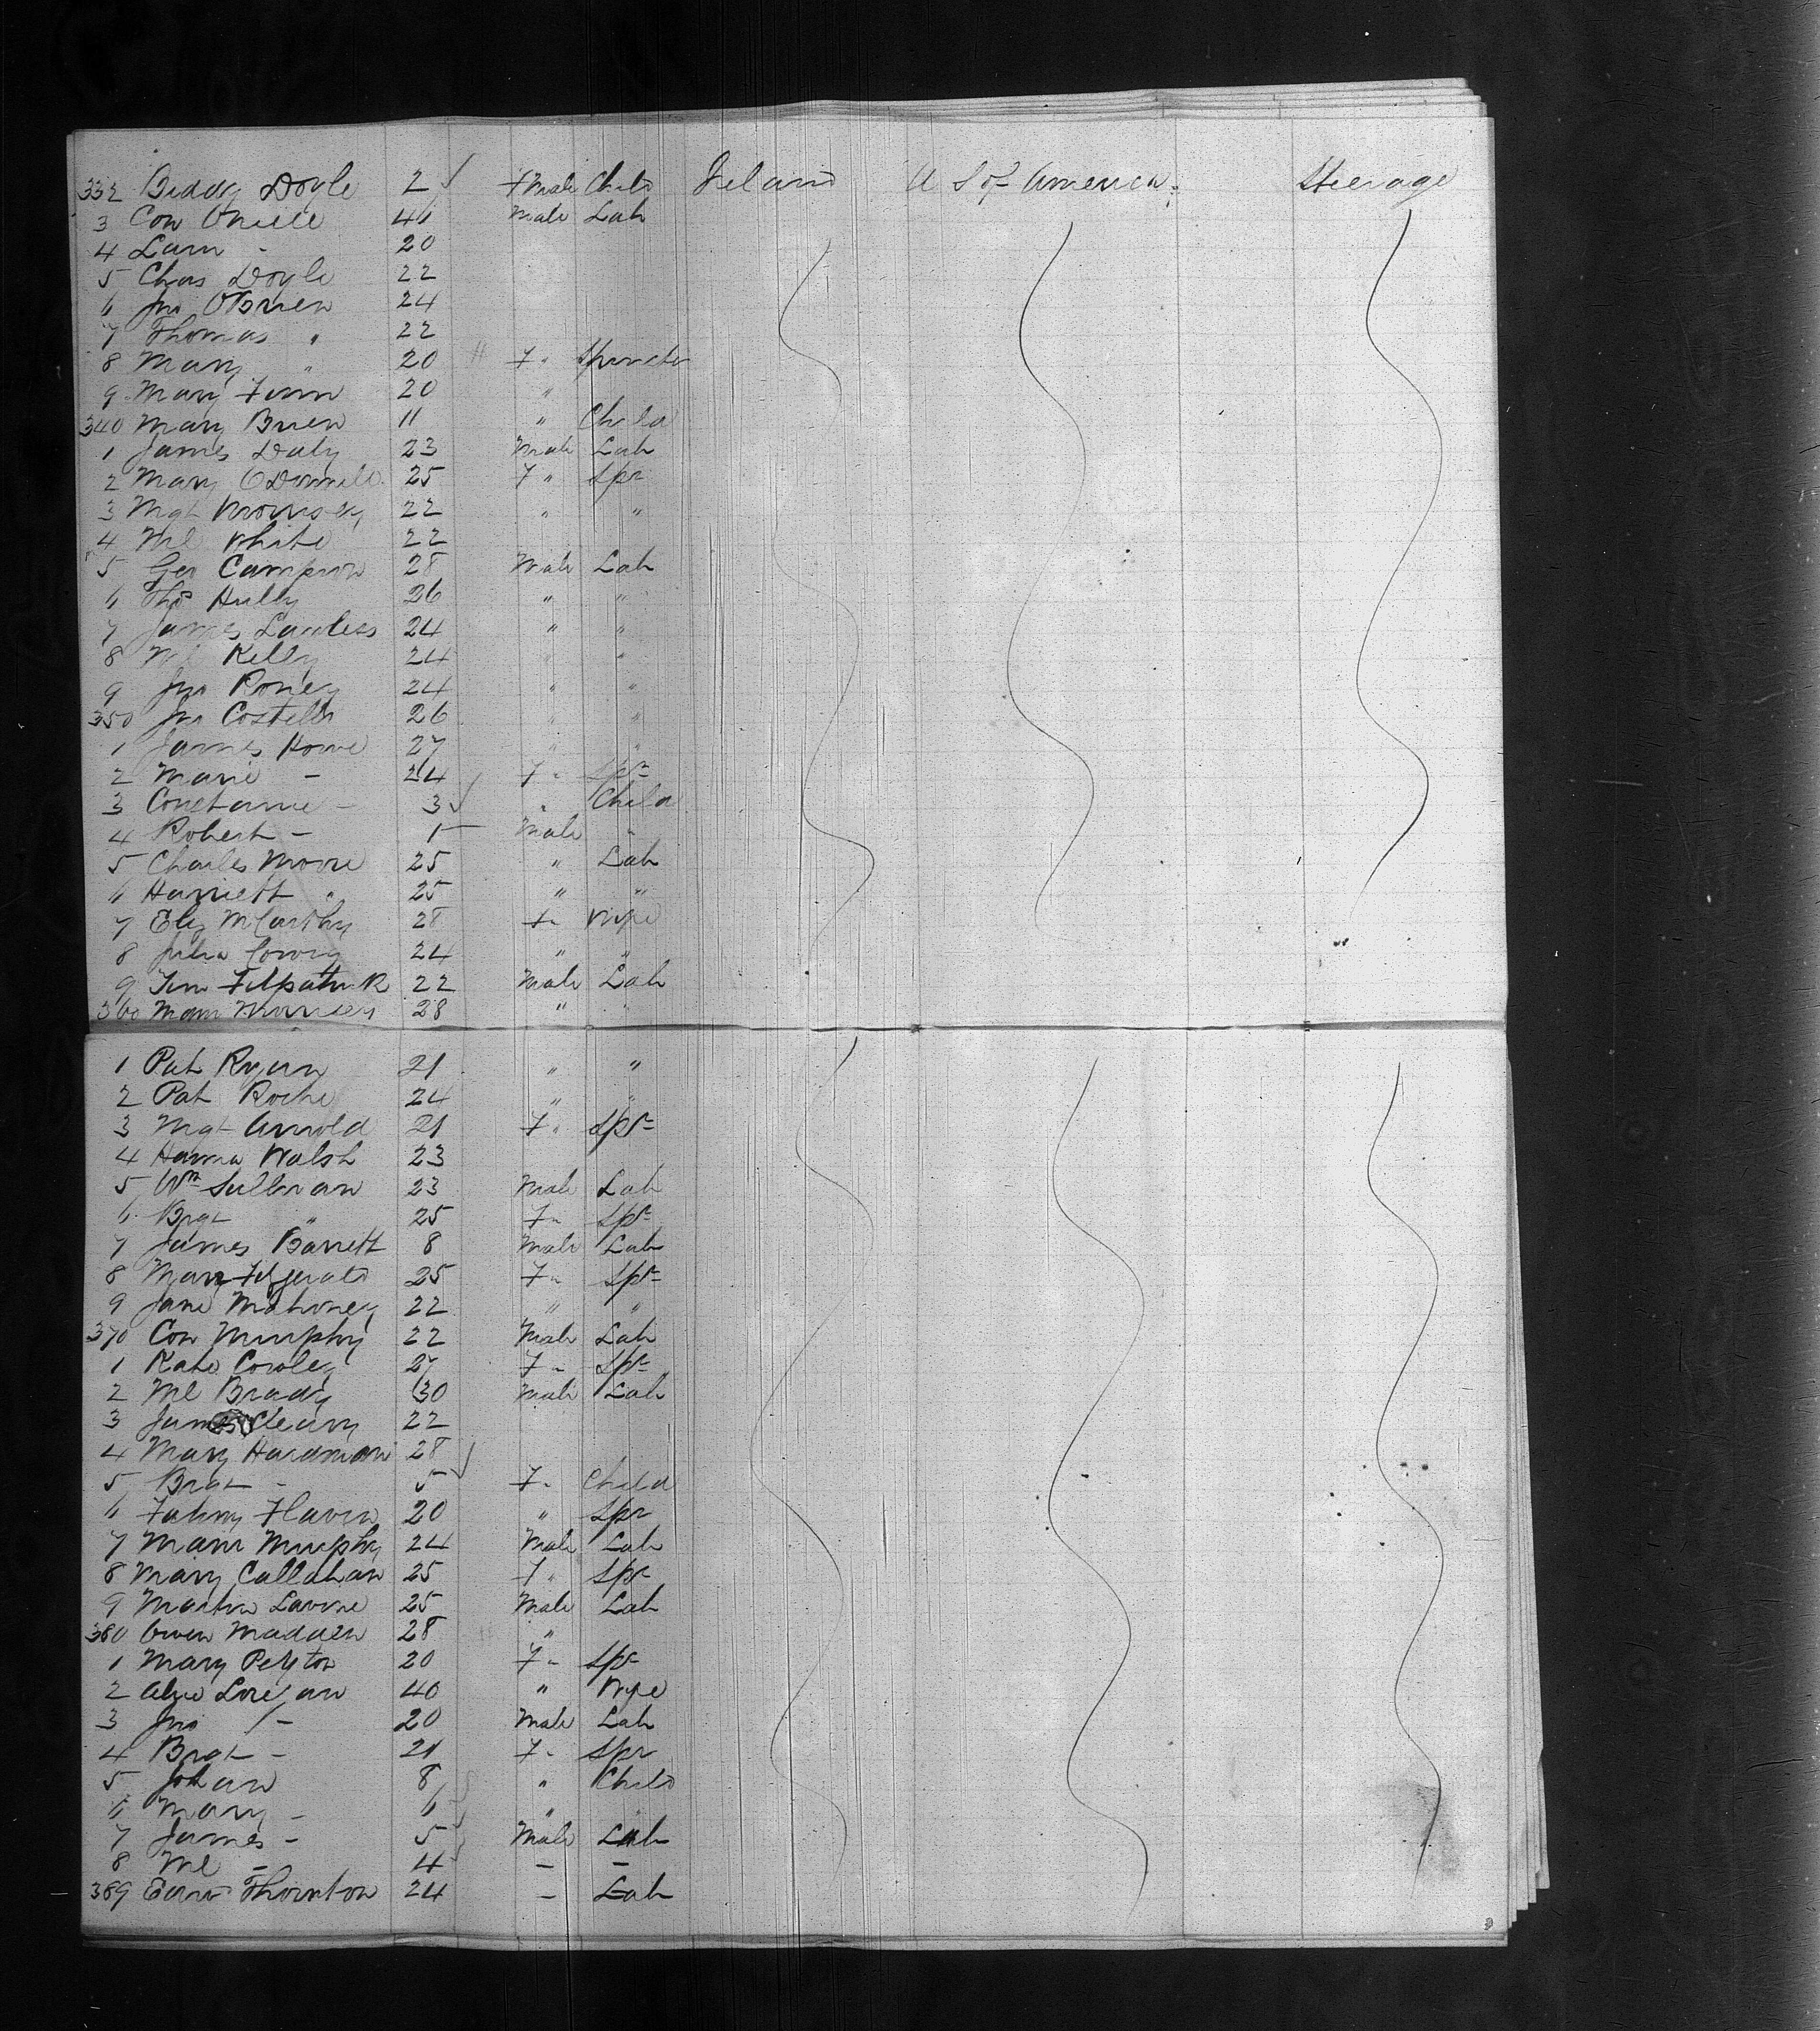 332 Biddy Doyle 2 Fmale Child Ireland U S of America Steerage
3 Con Oneill 41 Male Lab
4 Lam - 20
5 Chas Doyle 22
6 Jno OBrien 24
7 Thomas " 22
8 Mary " 20 F " Spinster
9 Mary Finn 20 "
340 Mary Brien 11 " Child
1 James Daly 23 Male Lab
2 Mary ODonnell 25 F " Spr
3 Mgt Morrissey 22 " "
4 Ml White 22
5 Geo Campion 28 Male Lab
6 Thos 26 " "
7 James Lawless 24 " "
8 Kelly 24 " "
9 Jno Roney 24 " "
350 Jno Costello 26 " "
1 James Howe 27 " "
2 Marie - 24 F " Spr
3 Constance - 3 " Child
4 Robert - 1 Male "
5 Charles Moore 25 " Lab
6 Harriett " 25 " "
7 Eliz McCarthy 28 F " Wife
8 Julia 24 " "
9 Tim Fitzpatrick 22 Male Lab
360 Morrissey 28 " "
1 Pat Ryan 21 " "
2 Pat Roche 24 " "
3 Mgt Arnold 21 F " Spr
4 Hanna Walsh 23
5 Wm Sullivan 23 Male Lab
6 Brgt " 25 F " Spr
7 James Barrett 8 Male Lab
8 Mary Fitzgerald 25 F " Spr
9 Jane Mahoney 22 " "
370 Con Murphy 22 Male Lab
1 Kate Cowley 27 F " Spr
2 Ml Brady 30 Male Lab
3 James Cleary 22
4 Mary Hardman 28
5 Brgt - 5 F " Child
6 Flavin 20 " Spr
7 Murphy 24 Male Lab
8 Mary Callahan 25 F " Spr
9 Martin Lavine 25 Male Lab
380 Owen Madden 28 "
1 Mary Peyton 20 F " Spr
2 40 " Wife
3 Jno - 20 Male Lab
4 Brgt - 21 F " Spr
5 Johan 8 " Child
6 Mary - 6 " "
7 James - 5 Male Lab
8 Ml - 4 - -
389 Thornton 24 - Lab